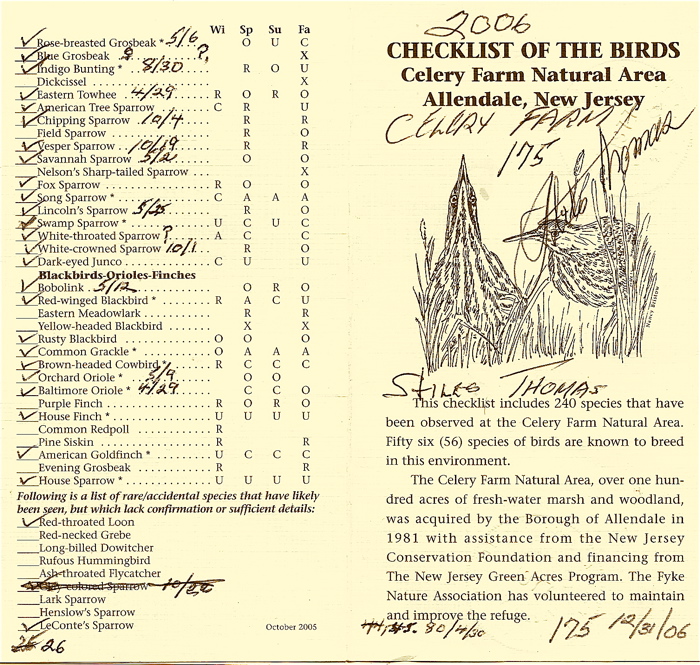 Wi Sp Su Fa
✓ Rose-breasted Grosbeak * 5/6 O U C
✓ Blue Grosbeak ? X
✓ Indigo Bunting * 8/30 R O U
Dickcissel X
✓ Eastern Towhee 4/29 R O R O
✓ American Tree Sparrow C R U
✓ Chipping Sparrow 10/4 R R
Field Sparrow R O
✓ Vesper Sparrow 10/19 R R
✓ Savannah Sparrow 5/2 O O
Nelson's Sharp-tailed Sparrow X
✓ Fox Sparrow R O O
✓ Song Sparrow * C A A A
✓ Lincoln's Sparrow 5/25 R O
✓ Swamp Sparrow * U C U C
✓ White-throated Sparrow ? A C C
✓ White-crowned Sparrow 10/1 R O
✓ Dark-eyed Junco C U U
Blackbirds-Orioles-Finches
✓ Bobolink 5/12 O R O
✓ Red-winged Blackbird * R A C U
Eastern Meadowlark R R
Yellow-headed Blackbird X X
✓ Rusty Blackbird O O O
✓ Common Grackle * O A A A
✓ Brown-headed Cowbird R C C C
✓ Orchard Oriole * 5/9 O O
✓ Baltimore Oriole * 4/29 C C O
Purple Finch R O R O
✓ House Finch * U U U U
Common Redpoll R
Pine Siskin R R
✓ American Goldfinch * U C C C
Evening Grosbeak R R
✓ House Sparrow * U U U U
Following is a list of rare/accidental species that have likely
been seen, but which lack confirmation or sufficient details:
✓ Red-throated Loon
Red-necked Grebe
Long-billed Dowitcher
Rufous Hummingbird
Ash-throated Flycatcher
colored Sparrow 10/20
Lark Sparrow
Henslow's Sparrow
✓ LeConte's Sparrow
October 2005
26
2006
CHECKLIST OF THE BIRDS
Celery Farm Natural Area
Allendale, New Jersey
CELERY FARM
175
Stiles Thomas
STILES THOMAS
This checklist includes 240 species that have
been observed at the Celery Farm Natural Area.
Fifty six (56) species of birds are known to breed
in this environment.
The Celery Farm Natural Area, over one hun-
dred acres of fresh-water marsh and woodland,
was acquired by the Borough of Allendale in
1981 with assistance from the New Jersey
Conservation Foundation and financing from
The New Jersey Green Acres Program. The Fyke
Nature Association has volunteered to maintain
and improve the refuge.
80/4/30
175 12/31/06